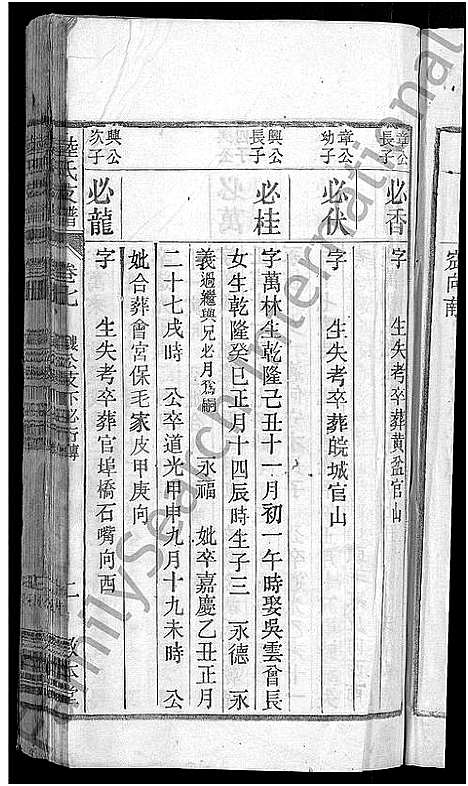 定向南
章公長子 必香 字 生失考卒葬黃盆官山
章公幼子 必伏 字 生失考卒葬皖城官山
興公長子 必桂 字萬林生乾隆己丑十一月初一午時娶吳雲會長
女生乾隆癸巳正月十四辰時生子三 永德 永
義過繼興兄必月爲嗣 永福 妣卒嘉慶乙丑正月
二十七戌時 公卒道光甲申九月十九未時 公
妣合葬會宮保毛家皮甲庚向
興公次子 必龍 字 生失考卒葬官埠橋石嘴向西
陸氏支譜 卷七 公支下必行傳 二 敦本堂
FamilySearch International